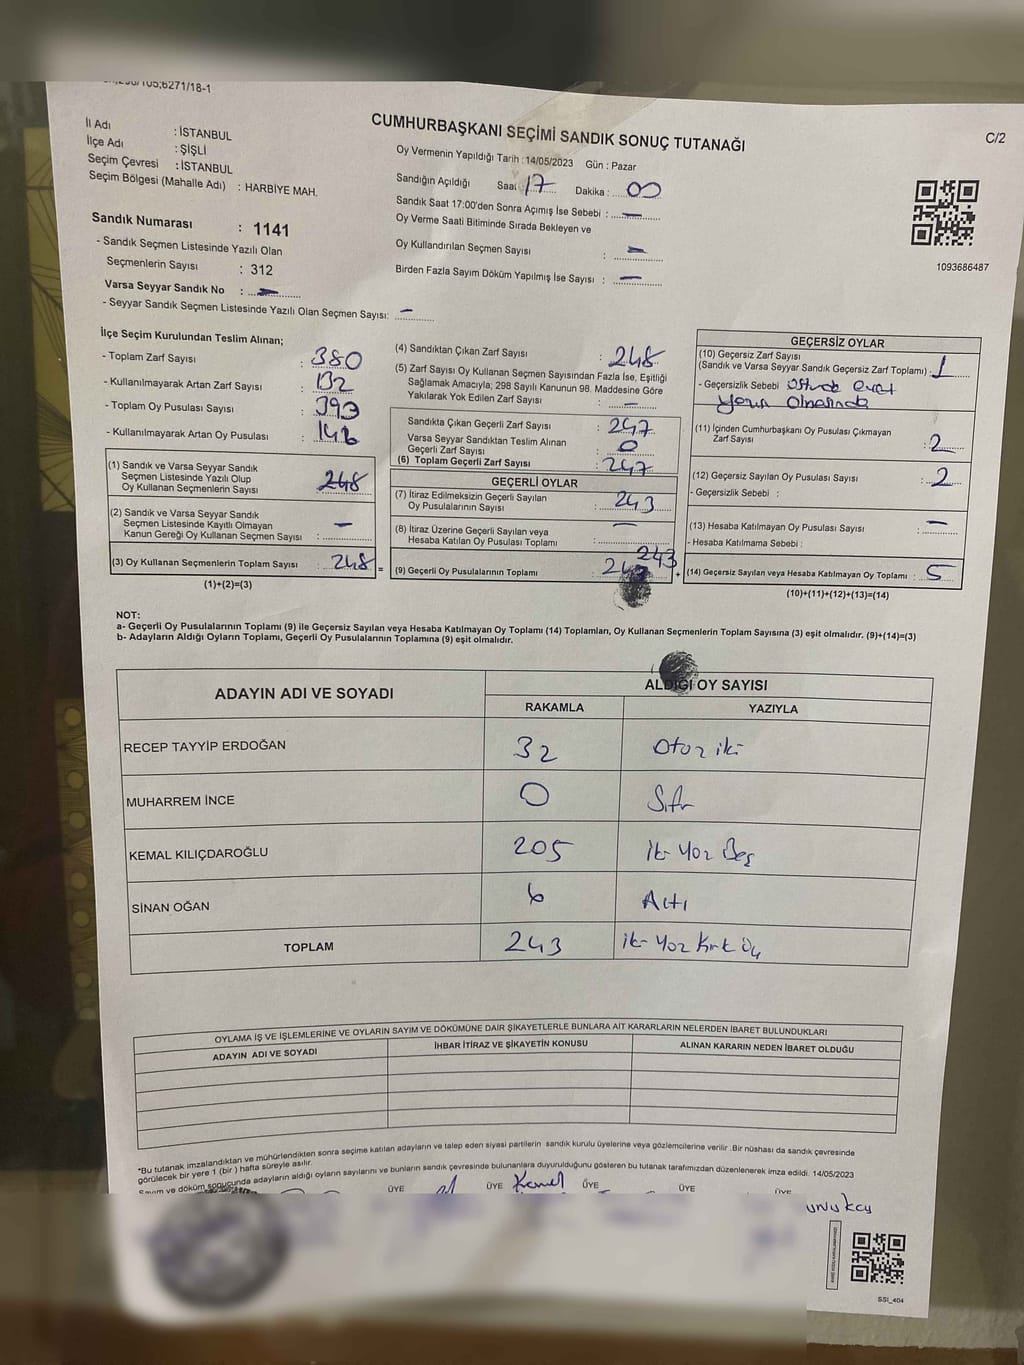 C/2
İl Adı : İSTANBUL
İlçe Adı : ŞİŞLİ
Seçim Çevresi : İSTANBUL
Seçim Bölgesi (Mahalle Adı) : HARBİYE MAH.
Sandık Numarası : 1141
- Sandık Seçmen Listesinde Yazılı Olan
Seçmenlerin Sayısı : 312
Varsa Seyyar Sandık No : —
- Seyyar Sandık Seçmen Listesinde Yazılı Olan Seçmen Sayısı: —
CUMHURBAŞKANI SEÇİMİ SANDIK SONUÇ TUTANAĞI
Oy Vermenin Yapıldığı Tarih : 14/05/2023 Gün : Pazar
Sandığın Açıldığı Saat 17 Dakika : 00
Sandık Saat 17:00'den Sonra Açımış İse Sebebi : —
Oy Verme Saati Bitiminde Sırada Bekleyen ve
Oy Kullandırılan Seçmen Sayısı : —
Birden Fazla Sayım Döküm Yapılmış İse Sayısı : —
1093686487
İlçe Seçim Kurulundan Teslim Alınan;
- Toplam Zarf Sayısı : 380
- Kullanılmayarak Artan Zarf Sayısı : 132
- Toplam Oy Pusulası Sayısı : 393
- Kullanılmayarak Artan Oy Pusulası : 146
(1) Sandık ve Varsa Seyyar Sandık
Seçmen Listesinde Yazılı Olup
Oy Kullanan Seçmenlerin Sayısı 248
(2) Sandık ve Varsa Seyyar Sandık
Seçmen Listesinde Kayıtlı Olmayan
Kanun Gereği Oy Kullanan Seçmen Sayısı : —
(3) Oy Kullanan Seçmenlerin Toplam Sayısı : 248 =
(1)+(2)=(3)
(4) Sandıktan Çıkan Zarf Sayısı : 248
(5) Zarf Sayısı Oy Kullanan Seçmen Sayısından Fazla İse, Eşitliği
Sağlamak Amacıyla; 298 Sayılı Kanunun 98. Maddesine Göre
Yakılarak Yok Edilen Zarf Sayısı : —
Sandıkta Çıkan Geçerli Zarf Sayısı : 247
Varsa Seyyar Sandıktan Teslim Alınan
Geçerli Zarf Sayısı : 0
(6) Toplam Geçerli Zarf Sayısı : 247
GEÇERLİ OYLAR
(7) İtiraz Edilmeksizin Geçerli Sayılan
Oy Pusulalarının Sayısı : 243
(8) İtiraz Üzerine Geçerli Sayılan veya
Hesaba Katılan Oy Pusulası Toplamı : —
243
(9) Geçerli Oy Pusulalarının Toplamı : +
GEÇERSİZ OYLAR
(10) Geçersiz Zarf Sayısı
(Sandık ve Varsa Seyyar Sandık Geçersiz Zarf Toplamı) : 1
- Geçersizlik Sebebi : evet
(11) İçinden Cumhurbaşkanı Oy Pusulası Çıkmayan
Zarf Sayısı : 2
(12) Geçersiz Sayılan Oy Pusulası Sayısı : 2
- Geçersizlik Sebebi :
(13) Hesaba Katılmayan Oy Pusulası Sayısı : —
- Hesaba Katılmama Sebebi :
(14) Geçersiz Sayılan veya Hesaba Katılmayan Oy Toplamı : 5
(10)+(11)+(12)+(13)=(14)
NOT:
a- Geçerli Oy Pusulalarının Toplamı (9) ile Geçersiz Sayılan veya Hesaba Katılmayan Oy Toplamı (14) Toplamları, Oy Kullanan Seçmenlerin Toplam Sayısına (3) eşit olmalıdır. (9)+(14)=(3)
b- Adayların Aldığı Oyların Toplamı, Geçerli Oy Pusulalarının Toplamına (9) eşit olmalıdır.
ADAYIN ADI VE SOYADI ALDIĞI OY SAYISI
RAKAMLA YAZIYLA
RECEP TAYYİP ERDOĞAN 32 Otuz iki
MUHARREM İNCE 0 Sıfır
KEMAL KILIÇDAROĞLU 205 iki Yüz Beş
SİNAN OĞAN 6 Altı
TOPLAM 243 iki Yüz Kırk Üç
OYLAMA İŞ VE İŞLEMLERİNE VE OYLARIN SAYIM VE DÖKÜMÜNE DAİR ŞİKAYETLERLE BUNLARA AİT KARARLARIN NELERDEN İBARET BULUNDUKLARI
ADAYIN ADI VE SOYADI İHBAR İTİRAZ VE ŞİKAYETİN KONUSU ALINAN KARARIN NEDEN İBARET OLDUĞU
*Bu tutanak imzalandıktan ve mühürlendikten sonra seçime katılan adayların ve talep eden siyasi partilerin sandık kurulu üyelerine veya gözlemcilerine verilir. Bir nüshası da sandık çevresinde
görülecek bir yere 1 (bir) hafta süreyle asılır.
Sayım ve döküm sonucunda adayların aldığı oyların sayılarını ve bunların sandık çevresinde bulunanlara duyurulduğunu gösteren bu tutanak tarafımızdan düzenlenerek imza edildi. 14/05/2023
ÜYE ÜYE Kemal ÜYE ÜYE ÜYE
SSİ_404